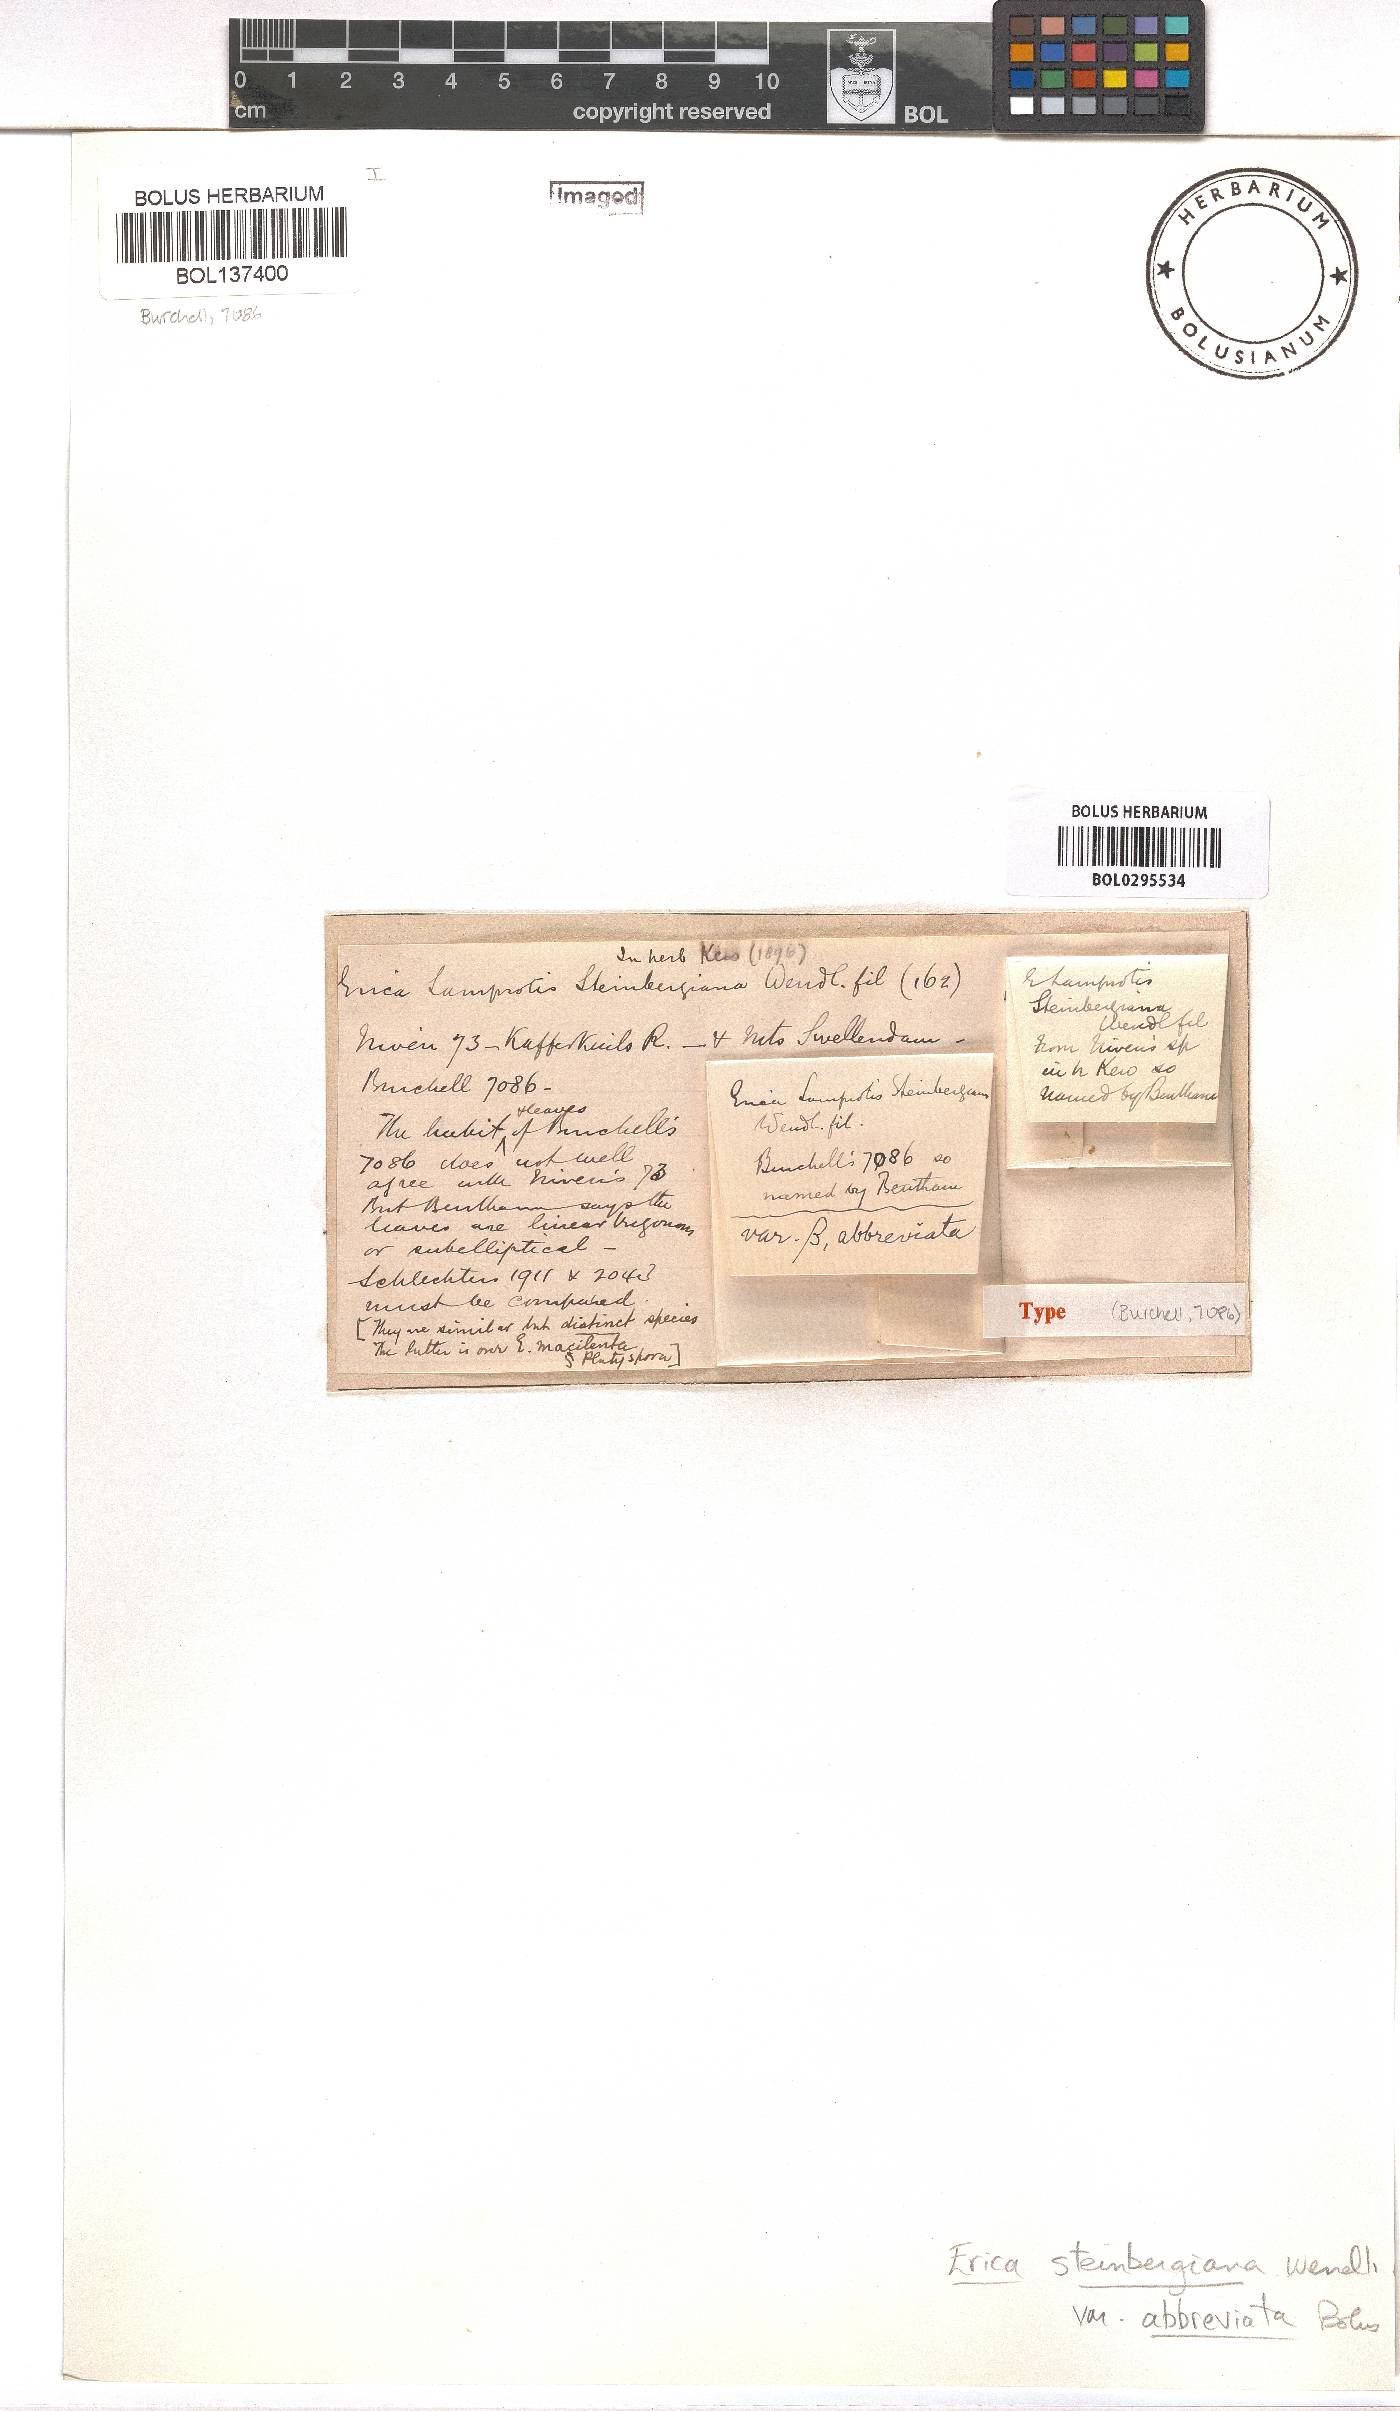 0 1 2 3 4 5 6 7 8 9 10
cm
copyright reserved
BOL
BOLUS HERBARIUM
BOL137400
Burchell, 7086
I
Imaged
HERBARIUM
BOLUSIANUM
BOLUS HERBARIUM
BOL0295534
In herb Kew (1896)
Erica Lamprotis Steinbergiana Wendl. fil (162)
Niven 73 - Kafferkuils R. - & Mts Swellendam -
Burchell 7086 -
The habit & leaves of Burchell's
7086 does not well
agree with Niven's 73
But Bentham says the
leaves are linear trigonous
or subelliptical -
Schlechter 1911 & 2043
must be compared.
[They are similar but distinct species
The latter is our E. macilenta
§ Platyspora]
Erica Lamprotis Steinbergiana
Wendl. fil.
Burchell's 7086 so
named by Bentham
var. β, abbreviata
E Lamprotis
Steinbergiana
Wendl fil
from Niven's sp
in h Kew so
named by Bentham
Type (Burchell, 7086)
Erica steinbergiana Wendl.
var. abbreviata Bolus